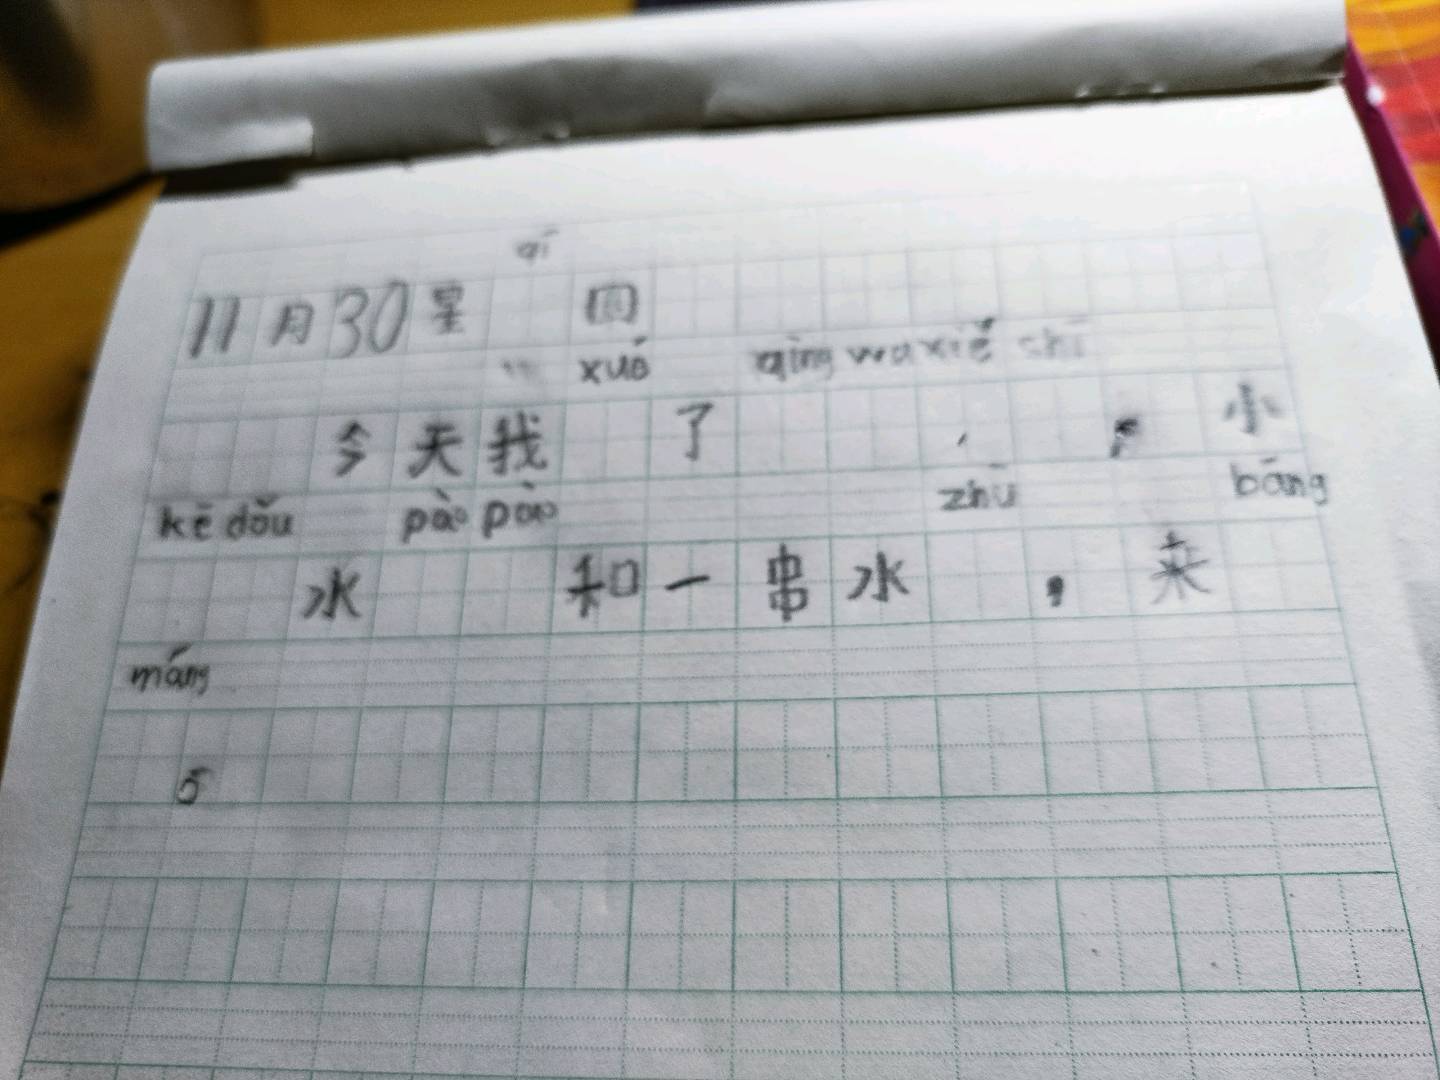 qī
11月30星 回
xuó qīng wa xiě shī
今天我 了 , 小
kē dǒu pào pào zhū bāng
水 和一串水 , 来
máng
ō